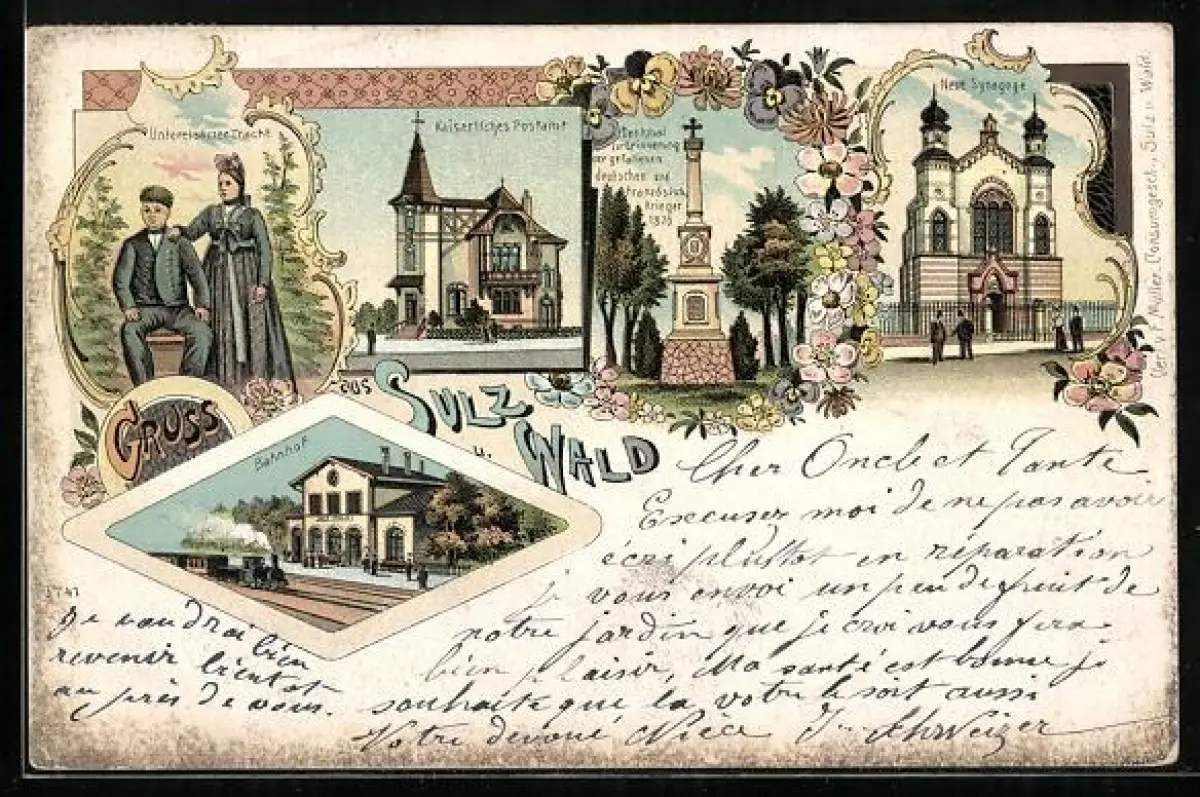 Unterelsässer Tracht
Kaiserliches Postamt
Denkmal
zur Erinnerung
der gefallenen
deutschen und
französisch.
Krieger
1870
Neue Synagoge
Verl. v. F. Müller, Consumgesch., Sulz u. Wald.
GRUSS
aus
SULZ
u.
WALD
Bahnhof
Cher Oncle et Tante
Excusez moi de ne pas avoir
écri plustot en réparation
je vous envoi un peu de fruit de
notre jardin que je croi vous fera
bien plaisir, Ma santé est bonne je
souhaite que la votre le soit aussi
Votre devoué Nièce J Schweizer
Je voudrai bien
revenir bientot
au près de vous.